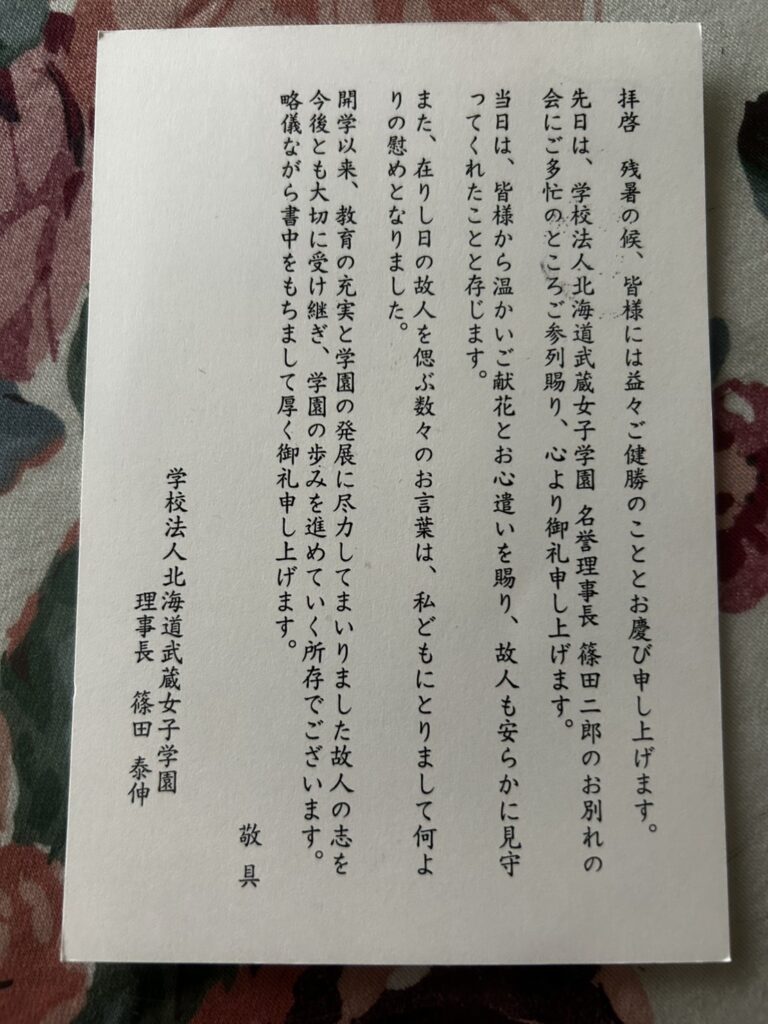 拝啓　残暑の候、皆様には益々ご健勝のこととお慶び申し上げます。
先日は、学校法人北海道武蔵女子学園 名誉理事長 篠田二郎のお別れの
会にご多忙のところご参列賜り、心より御礼申し上げます。
当日は、皆様から温かいご献花とお心遣いを賜り、故人も安らかに見守
ってくれたことと存じます。
また、在りし日の故人を偲ぶ数々のお言葉は、私どもにとりまして何よ
りの慰めとなりました。
開学以来、教育の充実と学園の発展に尽力してまいりました故人の志を
今後とも大切に受け継ぎ、学園の歩みを進めていく所存でございます。
略儀ながら書中をもちまして厚く御礼申し上げます。
敬具
学校法人北海道武蔵女子学園
理事長　篠田 泰伸